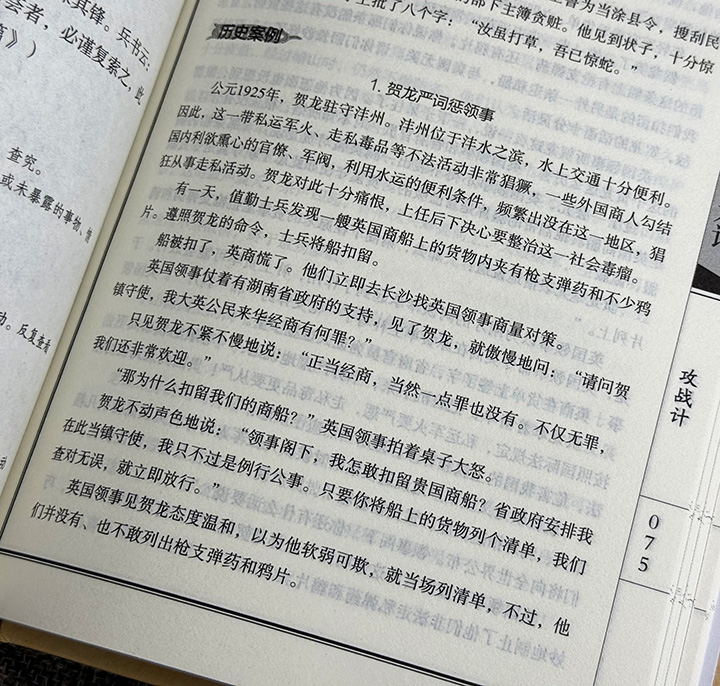 其锋。兵书云：
者，必谨复索之，
》）
查究。
或未暴露的事物、情
动。反复查看
曾为当涂县令，搜刮民
部下主簿贪赃。他见到状子，十分惊
上批了八个字：“汝虽打草，吾已惊蛇。”
历史案例
1. 贺龙严词惩领事
公元1925年，贺龙驻守沣州。沣州位于沣水之滨，水上交通十分便利。
因此，这一带私运军火、走私毒品等不法活动非常猖獗，一些外国商人勾结
国内利欲熏心的官僚、军阀，利用水运的便利条件，频繁出没在这一地区，猖
狂从事走私活动。贺龙对此十分痛恨，上任后下决心要整治这一社会毒瘤。
有一天，值勤士兵发现一艘英国商船上的货物内夹有枪支弹药和不少鸦
片。遵照贺龙的命令，士兵将船扣留。
船被扣了，英商慌了。他们立即去长沙找英国领事商量对策。
英国领事仗着有湖南省政府的支持，见了贺龙，就傲慢地问：“请问贺
镇守使，我大英公民来华经商有何罪？”
只见贺龙不紧不慢地说：“正当经商，当然一点罪也没有。不仅无罪，
我们还非常欢迎。”
“那为什么扣留我们的商船？”英国领事拍着桌子大怒。
贺龙不动声色地说：“领事阁下，我怎敢扣留贵国商船？省政府安排我
在此当镇守使，我只不过是例行公事。只要你将船上的货物列个清单，我们
查对无误，就立即放行。”
英国领事见贺龙态度温和，以为他软弱可欺，就当场列清单，不过，他
们并没有、也不敢列出枪支弹药和鸦片。
攻战计
075